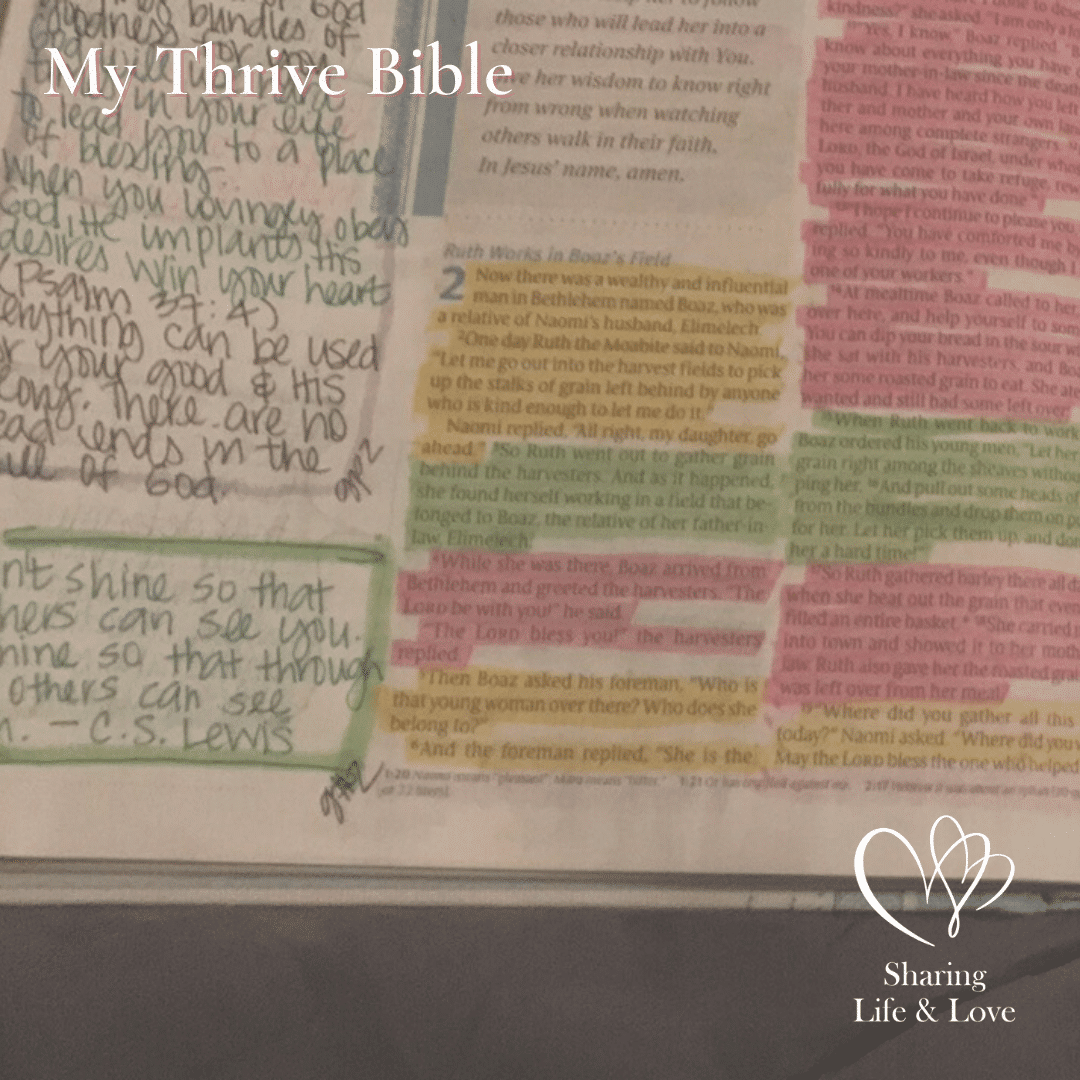 My Thrive Bible
of God
goodness bundles of
in your life
to lead you to a place
of blessing.
When you lovingly obey
God, He implants His
desires w/in your heart
(Psalm 37:4)
erything can be used
r your good & His
long. There are no
ead ends in the
ill of God.
n't shine so that
hers can see you.
hine so that through
others can see
m. – C.S. Lewis
those who will lead her into a
closer relationship with You.
ve her wisdom to know right
from wrong when watching
others walk in their faith.
In Jesus' name, amen.
Ruth Works in Boaz's Field
2 Now there was a wealthy and influential
man in Bethlehem named Boaz, who was
a relative of Naomi's husband, Elimelech.
2One day Ruth the Moabite said to Naomi,
"Let me go out into the harvest fields to pick
up the stalks of grain left behind by anyone
who is kind enough to let me do it."
Naomi replied, "All right, my daughter, go
ahead." 3So Ruth went out to gather grain
behind the harvesters. And as it happened,
she found herself working in a field that be-
longed to Boaz, the relative of her father-in-
law, Elimelech.
4While she was there, Boaz arrived from
Bethlehem and greeted the harvesters. "The
LORD be with you!" he said.
"The LORD bless you!" the harvesters
replied.
5Then Boaz asked his foreman, "Who is
that young woman over there? Who does she
belong to?"
6And the foreman replied, "She is the
kindness?" she asked. "I am only a fo
"Yes, I know," Boaz replied. "B
know about everything you have d
your mother-in-law since the death
husband. I have heard how you left
ther and mother and your own lan
here among complete strangers.
LORD, the God of Israel, under whos
you have come to take refuge, rew
fully for what you have done."
"I hope I continue to please you
replied. "You have comforted me by
ing so kindly to me, even though I
one of your workers."
14At mealtime Boaz called to her,
over here, and help yourself to som
You can dip your bread in the sour w
she sat with his harvesters, and Boa
her some roasted grain to eat. She ate
wanted and still had some left over.
15When Ruth went back to work
Boaz ordered his young men, "Let her
grain right among the sheaves withou
ping her. 16And pull out some heads of
from the bundles and drop them on pu
for her. Let her pick them up, and don
her a hard time!"
17So Ruth gathered barley there all da
when she beat out the grain that even
filled an entire basket.* 18She carried
into town and showed it to her moth
law. Ruth also gave her the roasted grai
was left over from her meal.
19"Where did you gather all this
today?" Naomi asked. "Where did you w
May the LORD bless the one who helped
1:20 Naomi means "pleasant"; Mara means "bitter." 1:21
Sharing
Life & Love